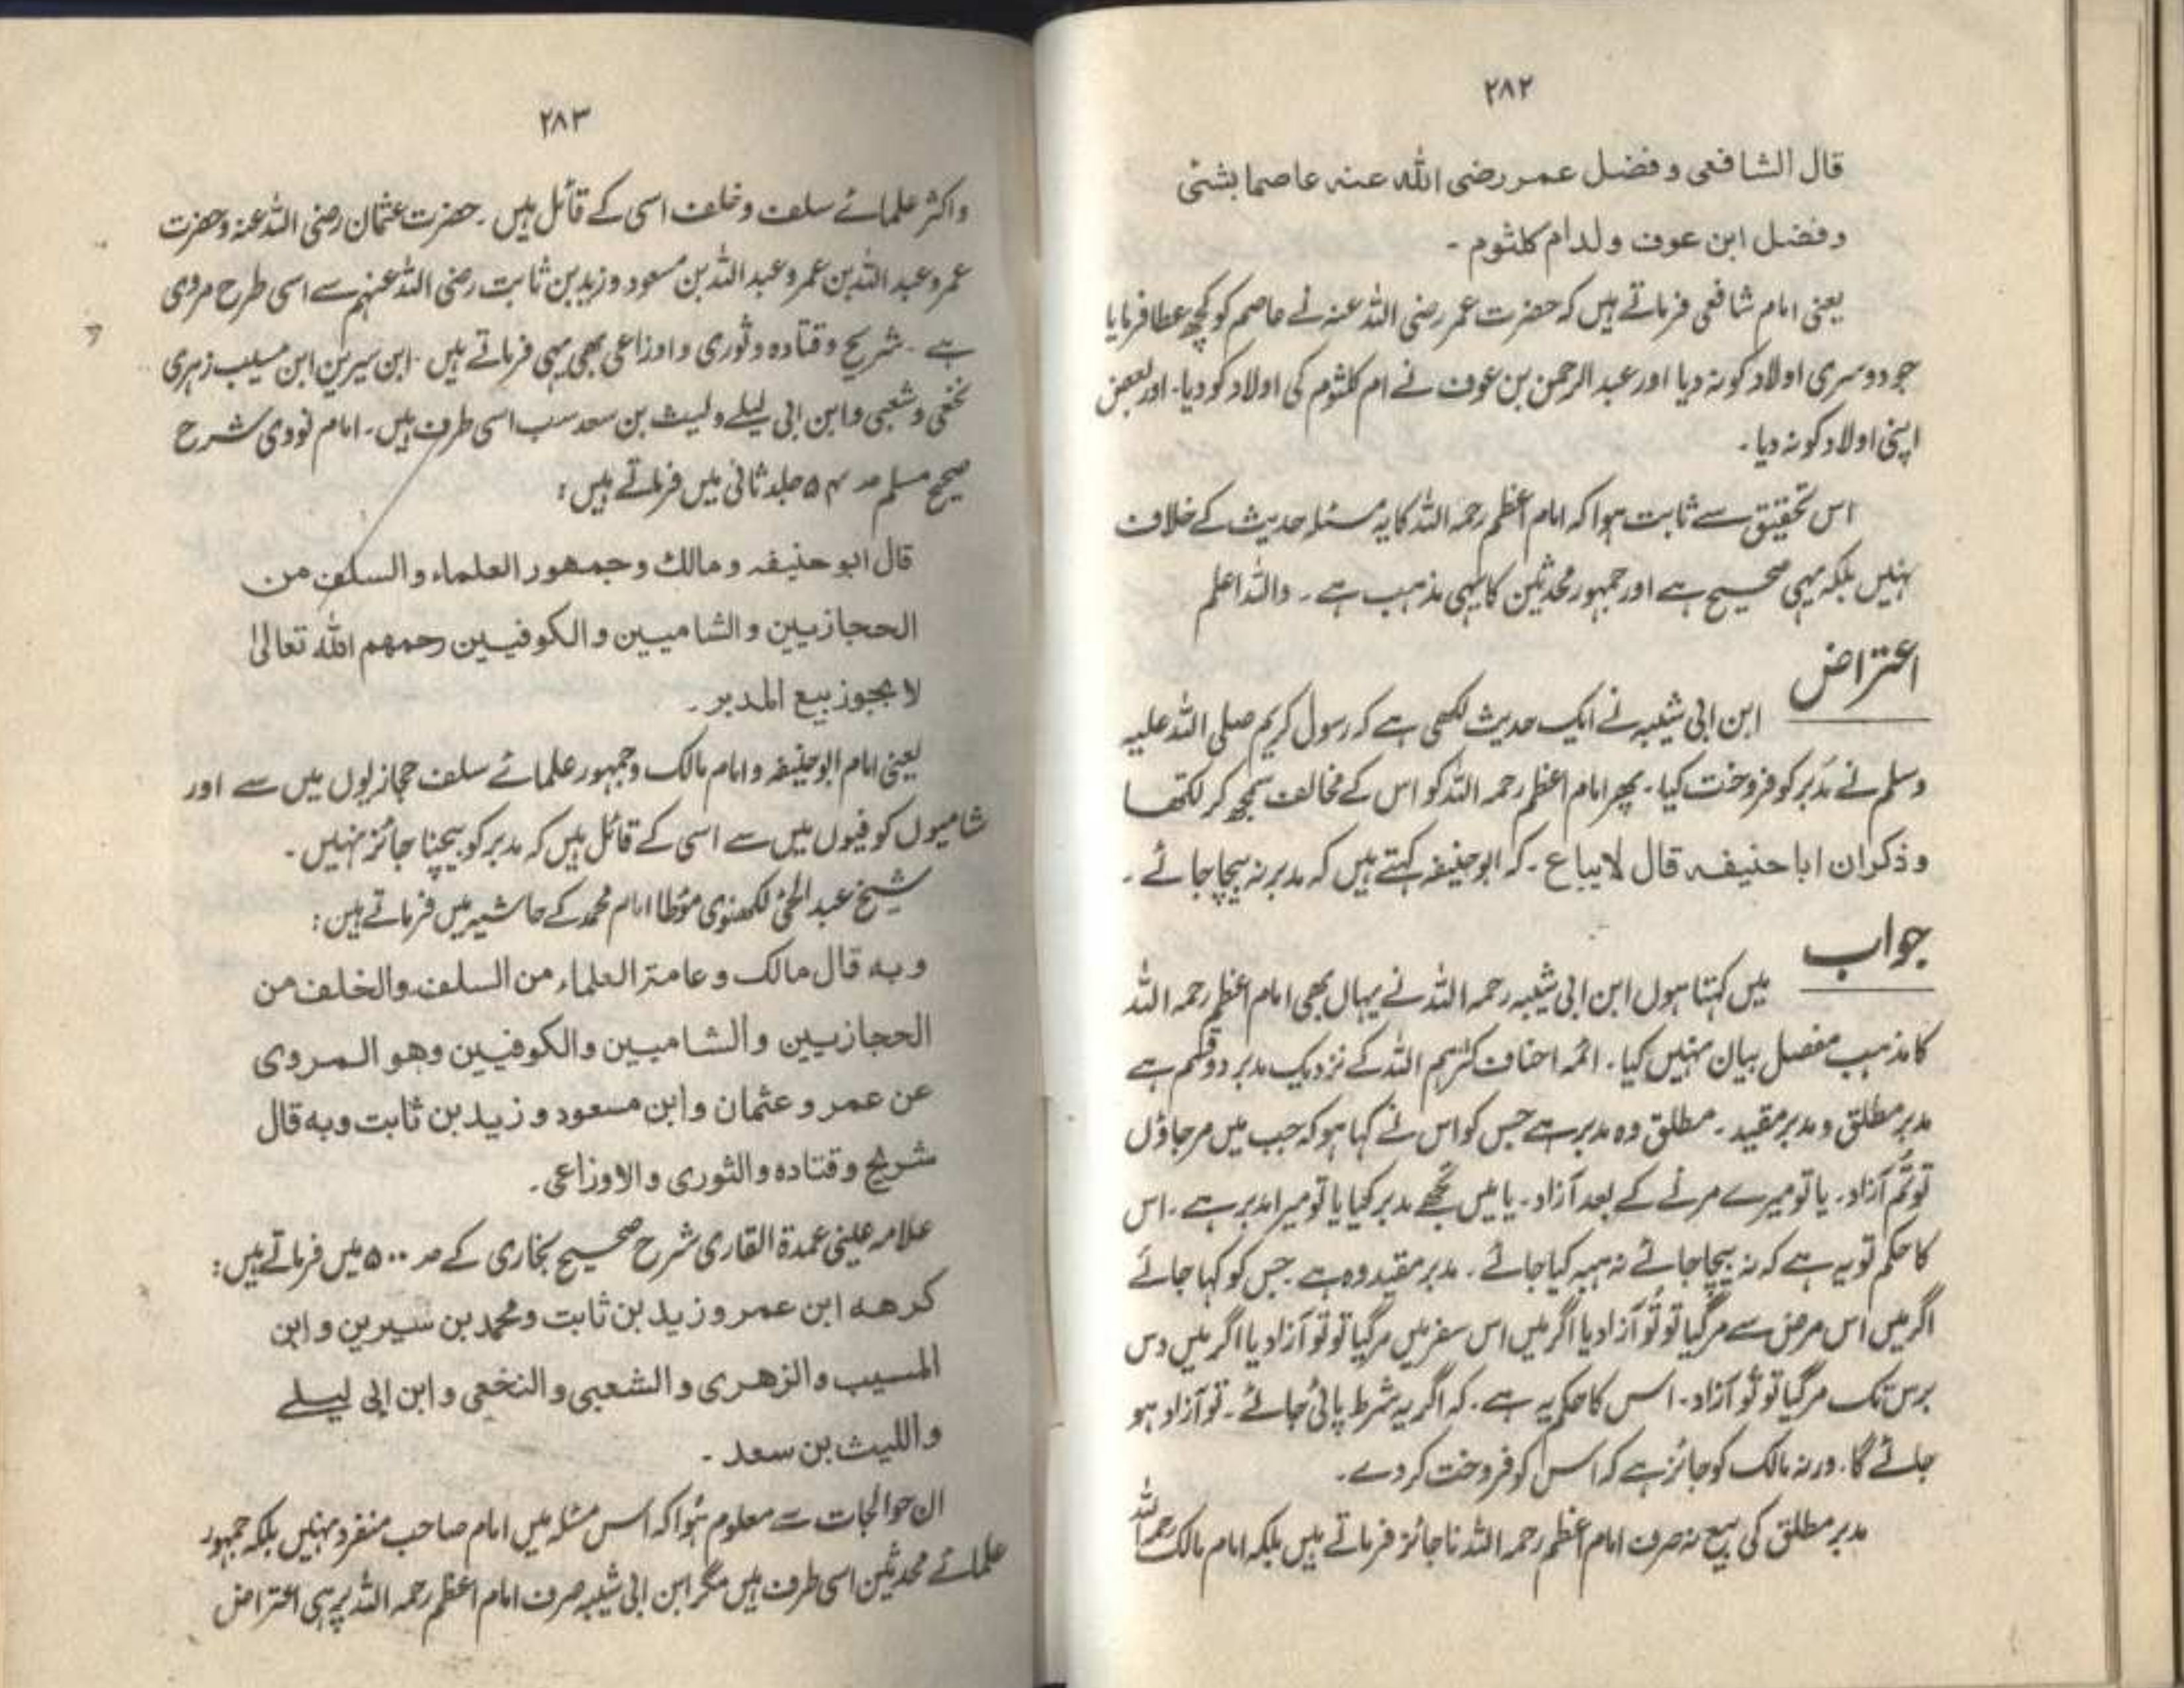 ۲۸۲
قال الشافعی وفضل عمر رضی الله عنہ عاصما بشئی
وفضل ابن عوف ولد ام کلثوم ۔
یعنی امام شافعی فرماتے ہیں کہ حضرت عمر رضی اللہ عنہ نے عاصم کو کچھ عطا فرمایا
جو دوسری اولاد کو نہ دیا اور عبدالرحمن بن عوف نے ام کلثوم کی اولاد کو دیا۔ اور بعض
اپنی اولاد کو نہ دیا ۔
اس تحقیق سے ثابت ہوا کہ امام اعظم رحمہ اللہ کا یہ مسئلہ حدیث کے خلاف
نہیں بلکہ یہی صحیح ہے اور جمہور محدثین کا یہی مذہب ہے ۔ واللہ اعلم
اعتراض
ابن ابی شیبہ نے ایک حدیث لکھی ہے کہ رسول کریم صلی اللہ علیہ
وسلم نے مدبر کو فروخت کیا ۔ پھر امام اعظم رحمہ اللہ کو اس کے مخالف سمجھ کر لکھا
وذکر ان ابا حنیفہ قال لا یباع ۔ کہ ابو حنیفہ کہتے ہیں کہ مدبر نہ بیچا جائے ۔
جواب
میں کہتا ہوں ابن ابی شیبہ رحمہ اللہ نے یہاں بھی امام اعظم رحمہ اللہ
کا مذہب مفصل بیان نہیں کیا ۔ ائمہ احناف کثرہم اللہ کے نزدیک مدبر دو قسم ہے
مدبر مطلق و مدبر مقید ۔ مطلق وہ مدبر ہے جس کو اس نے کہا ہو کہ جب میں مر جاؤں
تو تُم آزاد ۔ یا تو میرے مرنے کے بعد آزاد ۔ یا میں تجھے مدبر کیا یا تو میرا مدبر ہے ۔ اس
کا حکم تو یہ ہے کہ نہ بیچا جائے نہ ہبہ کیا جائے ۔ مدبر مقید وہ ہے جس کو کہا جائے
اگر میں اس مرض سے مر گیا تو تُو آزاد یا اگر میں اس سفر میں مر گیا تو تو آزاد یا اگر میں دس
برس تک مر گیا تو تُو آزاد ۔ اس کا حکم یہ ہے ۔ کہ اگر یہ شرط پائی جائے ۔ تو آزاد ہو
جائے گا ۔ ورنہ مالک کو جائز ہے کہ اس کو فروخت کر دے ۔
مدبر مطلق کی بیع نہ صرف امام اعظم رحمہ اللہ ناجائز فرماتے ہیں بلکہ امام مالک رحمہ اللہ
۲۸۳
واکثر علمائے سلف و خلف اسی کے قائل ہیں ۔ حضرت عثمان رضی اللہ عنہ و حضرت
عمر و عبداللہ بن عمر و عبداللہ بن مسعود و زید بن ثابت رضی اللہ عنہم سے اسی طرح مروی
ہے ۔ شریح و قتادہ و ثوری و اوزاعی بھی یہی فرماتے ہیں ۔ ابن سیرین ابن مسیب زہری
نخعی و شعبی و ابن ابی لیلے و لیث بن سعد سب اسی طرف ہیں ۔ امام نووی شرح
صحیح مسلم صہ ۵۴ جلد ثانی میں فرماتے ہیں :
قال ابو حنیفہ ومالک وجمھور العلماء والسلف من
الحجازیین والشامیین والکوفیین رحمهم الله تعالیٰ
لا یجوز بیع المدبر ۔
یعنی امام ابو حنیفہ و امام مالک و جمہور علمائے سلف حجازیوں میں سے اور
شامیوں کوفیوں میں سے اسی کے قائل ہیں کہ مدبر کو بیچنا جائز نہیں ۔
شیخ عبدالحئ لکھنوی مؤطا امام محمد کے حاشیہ میں فرماتے ہیں :
وبه قال مالک وعامۃ العلماء من السلف والخلف من
الحجازیین والشامیین والکوفیین وهو المروی
عن عمر وعثمان وابن مسعود وزید بن ثابت وبه قال
شریح وقتادہ والثوری والاوزاعی ۔
علامہ عینی عمدۃ القاری شرح صحیح بخاری کے صہ ۵۰۰ میں فرماتے ہیں :
کرهه ابن عمر وزید بن ثابت ومحمد بن سیرین وابن
المسیب والزهری والشعبی والنخعی وابن ابی لیلے
واللیث بن سعد ۔
ان حوالجات سے معلوم ہُوا کہ اس مسئلہ میں امام صاحب منفرد نہیں بلکہ جمہور
علمائے محدثین اسی طرف ہیں مگر ابن ابی شیبہ صرف امام اعظم رحمہ اللہ پر ہی اعتراض